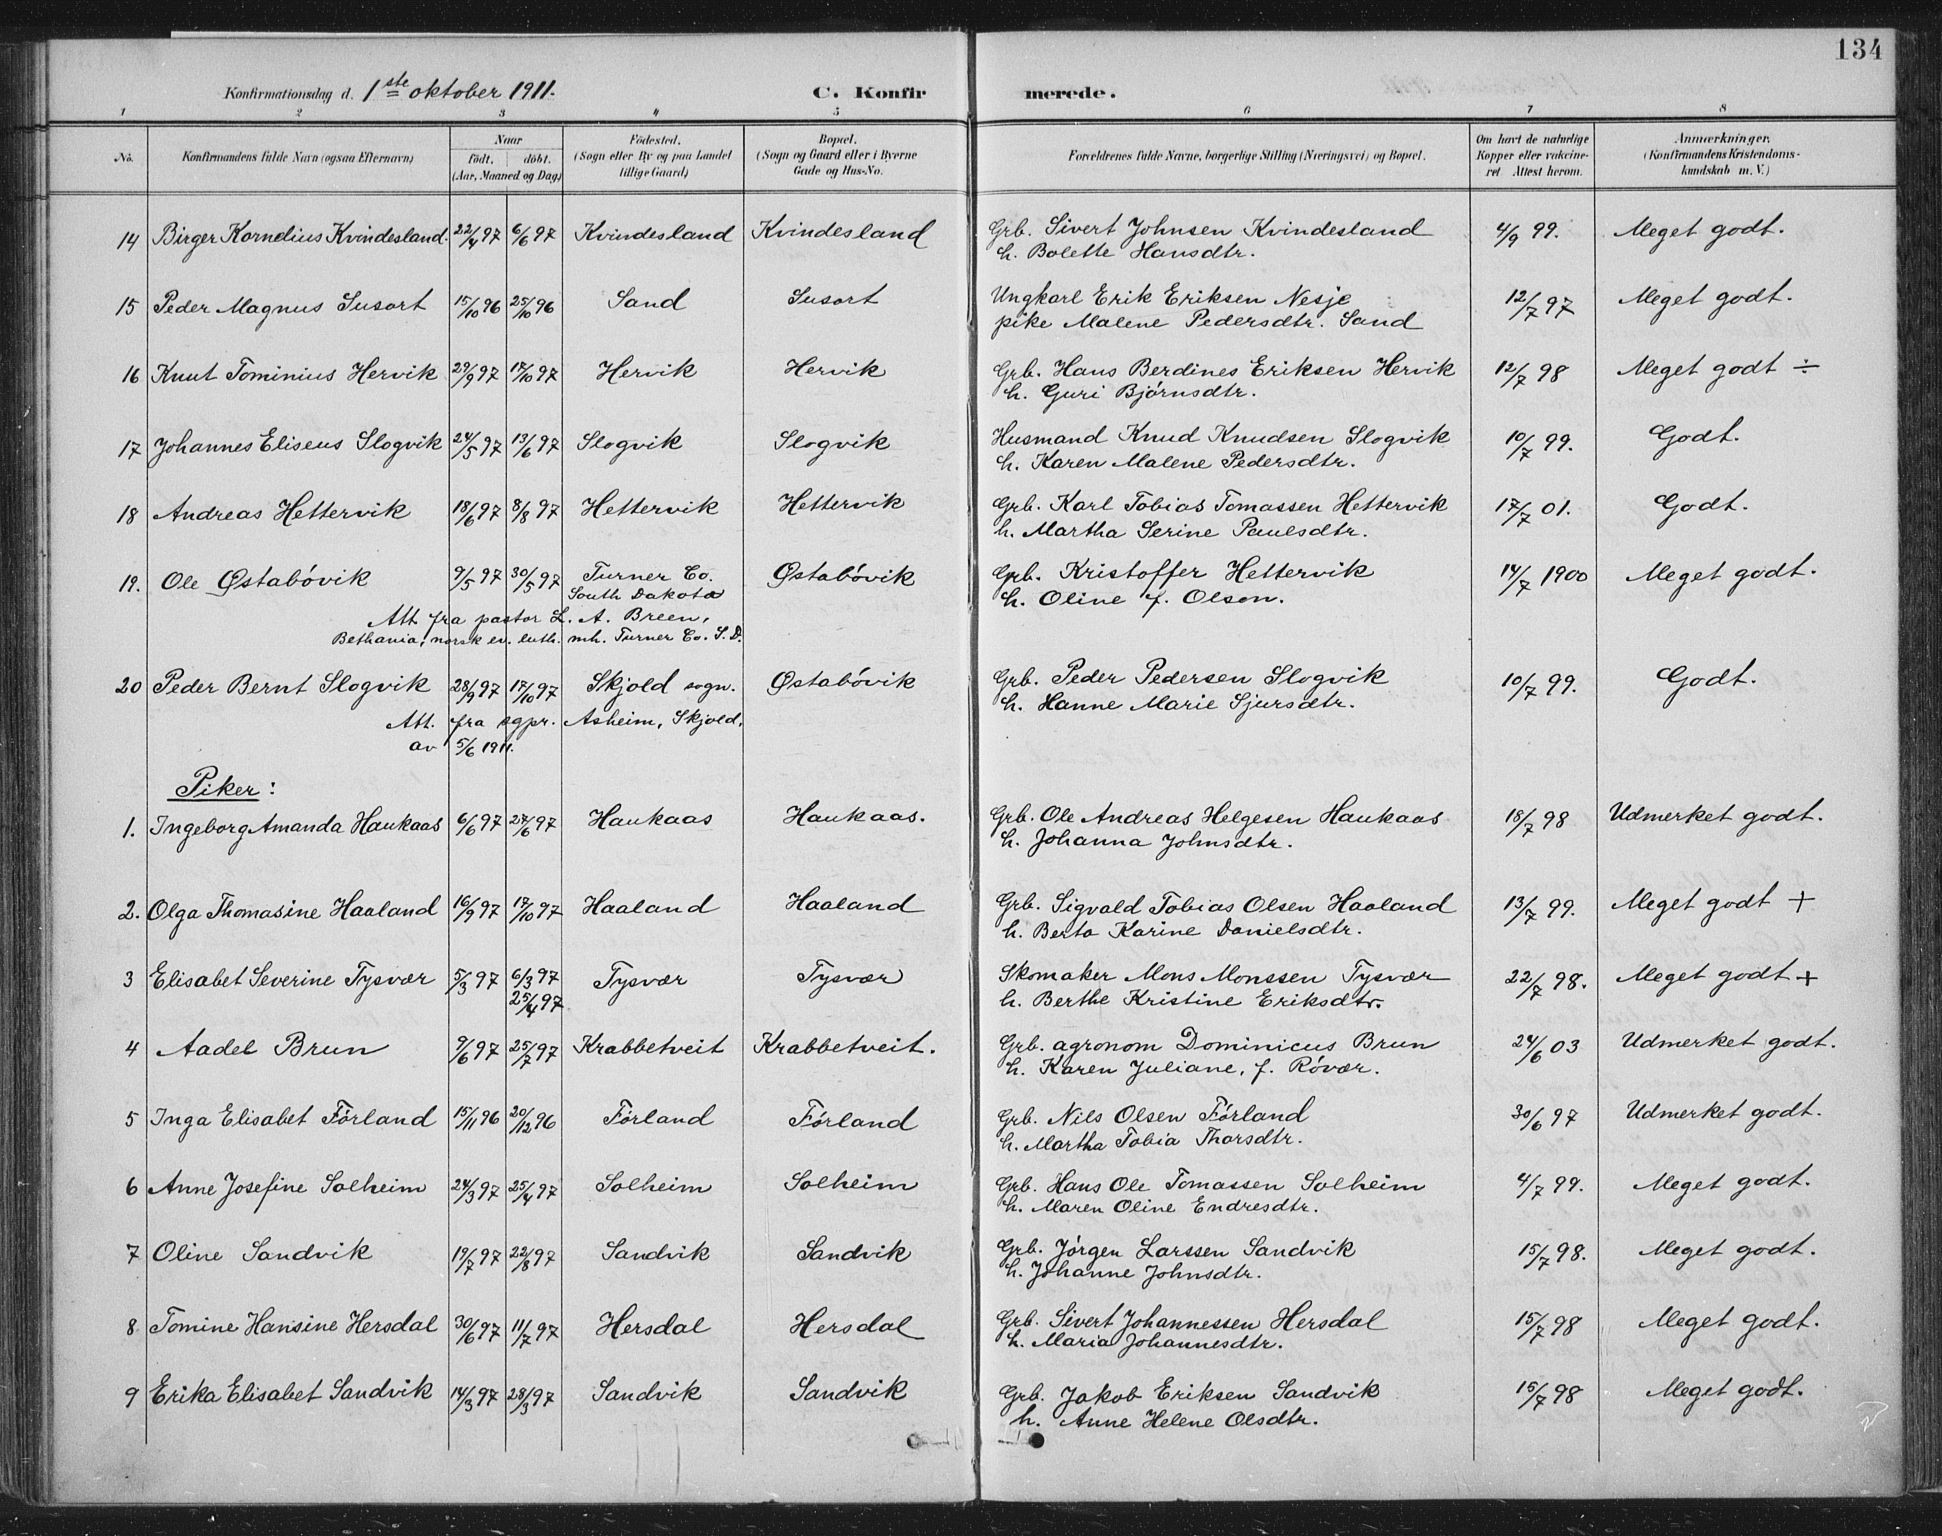 134
Konfirmationsdag d. 1ste oktober 1911. C. Konfirmerede.
1 2 3 4 5 6 7 8
No. Konfirmandens fulde Navn (ogsaa Efternavn) Naar födt. döbt. (Aar, Maaned og Dag) Födested. (Sogn eller By og paa Landet tillige Gaard) Bopæl. (Sogn og Gaard eller i Byerne Gade og Hus-No. Forældrenes fulde Navne, borgerlige Stilling (Næringsvei) og Bopæl. Om havt de naturlige Kopper eller vakcineret Attest herom. Anmærkninger. (Konfirmandens Kristendomskundskab m. V.)
14 Birger Kornelius Kvindesland. 22/4 97 6/6 97 Kvindesland Kvindesland Grb. Sivert Johnsen Kvindesland 4/9 99. Meget godt.
h. Bolette Hansdtr.
15 Peder Magnus Susort 15/10 96 25/10 96 Sand Susort Ungkarl Erik Eriksen Nesje 12/7 97 Meget godt.
pike Malene Pedersdtr. Sand
16 Knut Tominius Hervik 29/9 97 17/10 97 Hervik Hervik Grb. Hans Berdines Eriksen Hervik 12/7 98 Meget godt ÷
h. Guri Bjørnsdtr.
17 Johannes Eliseus Slogvik 24/5 97 13/6 97 Slogvik Slogvik Husmand Knud Knudsen Slogvik 10/7 99. Godt.
h. Karen Malene Pedersdtr.
18 Andreas Hettervik 18/6 97 8/8 97 Hettervik Hettervik Grb. Karl Tobias Tomassen Hettervik 17/7 01. Godt.
h. Martha Serine Paulsdtr.
19. Ole Østabóvik 9/5 97 30/5 97 Turner Co. Østabóvik Grb. Kristoffer Hettervik 14/7 1900 Meget godt.
South Dakota h. Oline f. Olson.
Att. fra pastor L. A. Breen,
Bethania, norsk ev. luth. mh. Turner Co. S. D.
20 Peder Bernt Slogvik 28/9 97 17/10 97 Skjold sogn. Østabóvik Grb. Peder Pedersen Slogvik 10/7 99. Godt.
h. Hanne Marie Sjursdtr.
Att. fra sgpr. Asheim, Skjold,
av 5/6 1911.
Piker:
1. Ingeborg Amanda Haukaas 6/6 97 27/6 97 Haukaas Haukaas. Grb. Ole Andreas Helgesen Haukaas 18/7 98 Udmerket godt.
h. Johanna Johnsdtr.
2. Olga Thomasine Haaland 16/9 97 17/10 97 Haaland Haaland Grb. Sigvald Tobias Olsen Haaland 13/7 99. Meget godt +
h. Berta Karine Danielsdtr.
3 Elisabet Severine Tysvær 5/3 97 6/3 97 Tysvær Tysvær Skomaker Mons Monssen Tysvær 22/7 98. Meget godt +
25/4 97 h. Berthe Kristine Eriksdtr.
4 Aadel Brun 9/6 97 25/7 97 Krabbetveit Krabbetveit. Grb. agronom Dominicus Brun 24/6 03 Udmerket godt.
h. Karen Juliane, f. Róvær.
5 Inga Elisabet Fórland 15/11 96 20/12 96 Fórland Fórland Grb. Nils Olsen Fórland 30/6 97 Udmerket godt.
h. Martha Tobia Thorsdtr.
6 Anne Josefine Solheim 24/3 97 25/4 97 Solheim Solheim Grb. Hans Ole Tomassen Solheim 4/7 99. Meget godt.
h. Maren Oline Endresdtr.
7 Oline Sandvik 19/7 97 22/8 97 Sandvik Sandvik Grb. Jørgen Larssen Sandvik 15/7 98. Meget godt.
h. Johanne Johnsdtr.
8 Tomine Hansine Hersdal 30/6 97 11/7 97 Hersdal Hersdal Grb. Sivert Johannessen Hersdal 15/7 98 Meget godt.
h. Maria Johannesdtr.
9 Erika Elisabet Sandvik 14/3 97 28/3 97 Sandvik Sandvik Grb. Jakob Eriksen Sandvik 15/7 98 Meget godt.
h. Anne Helene Olsdtr.